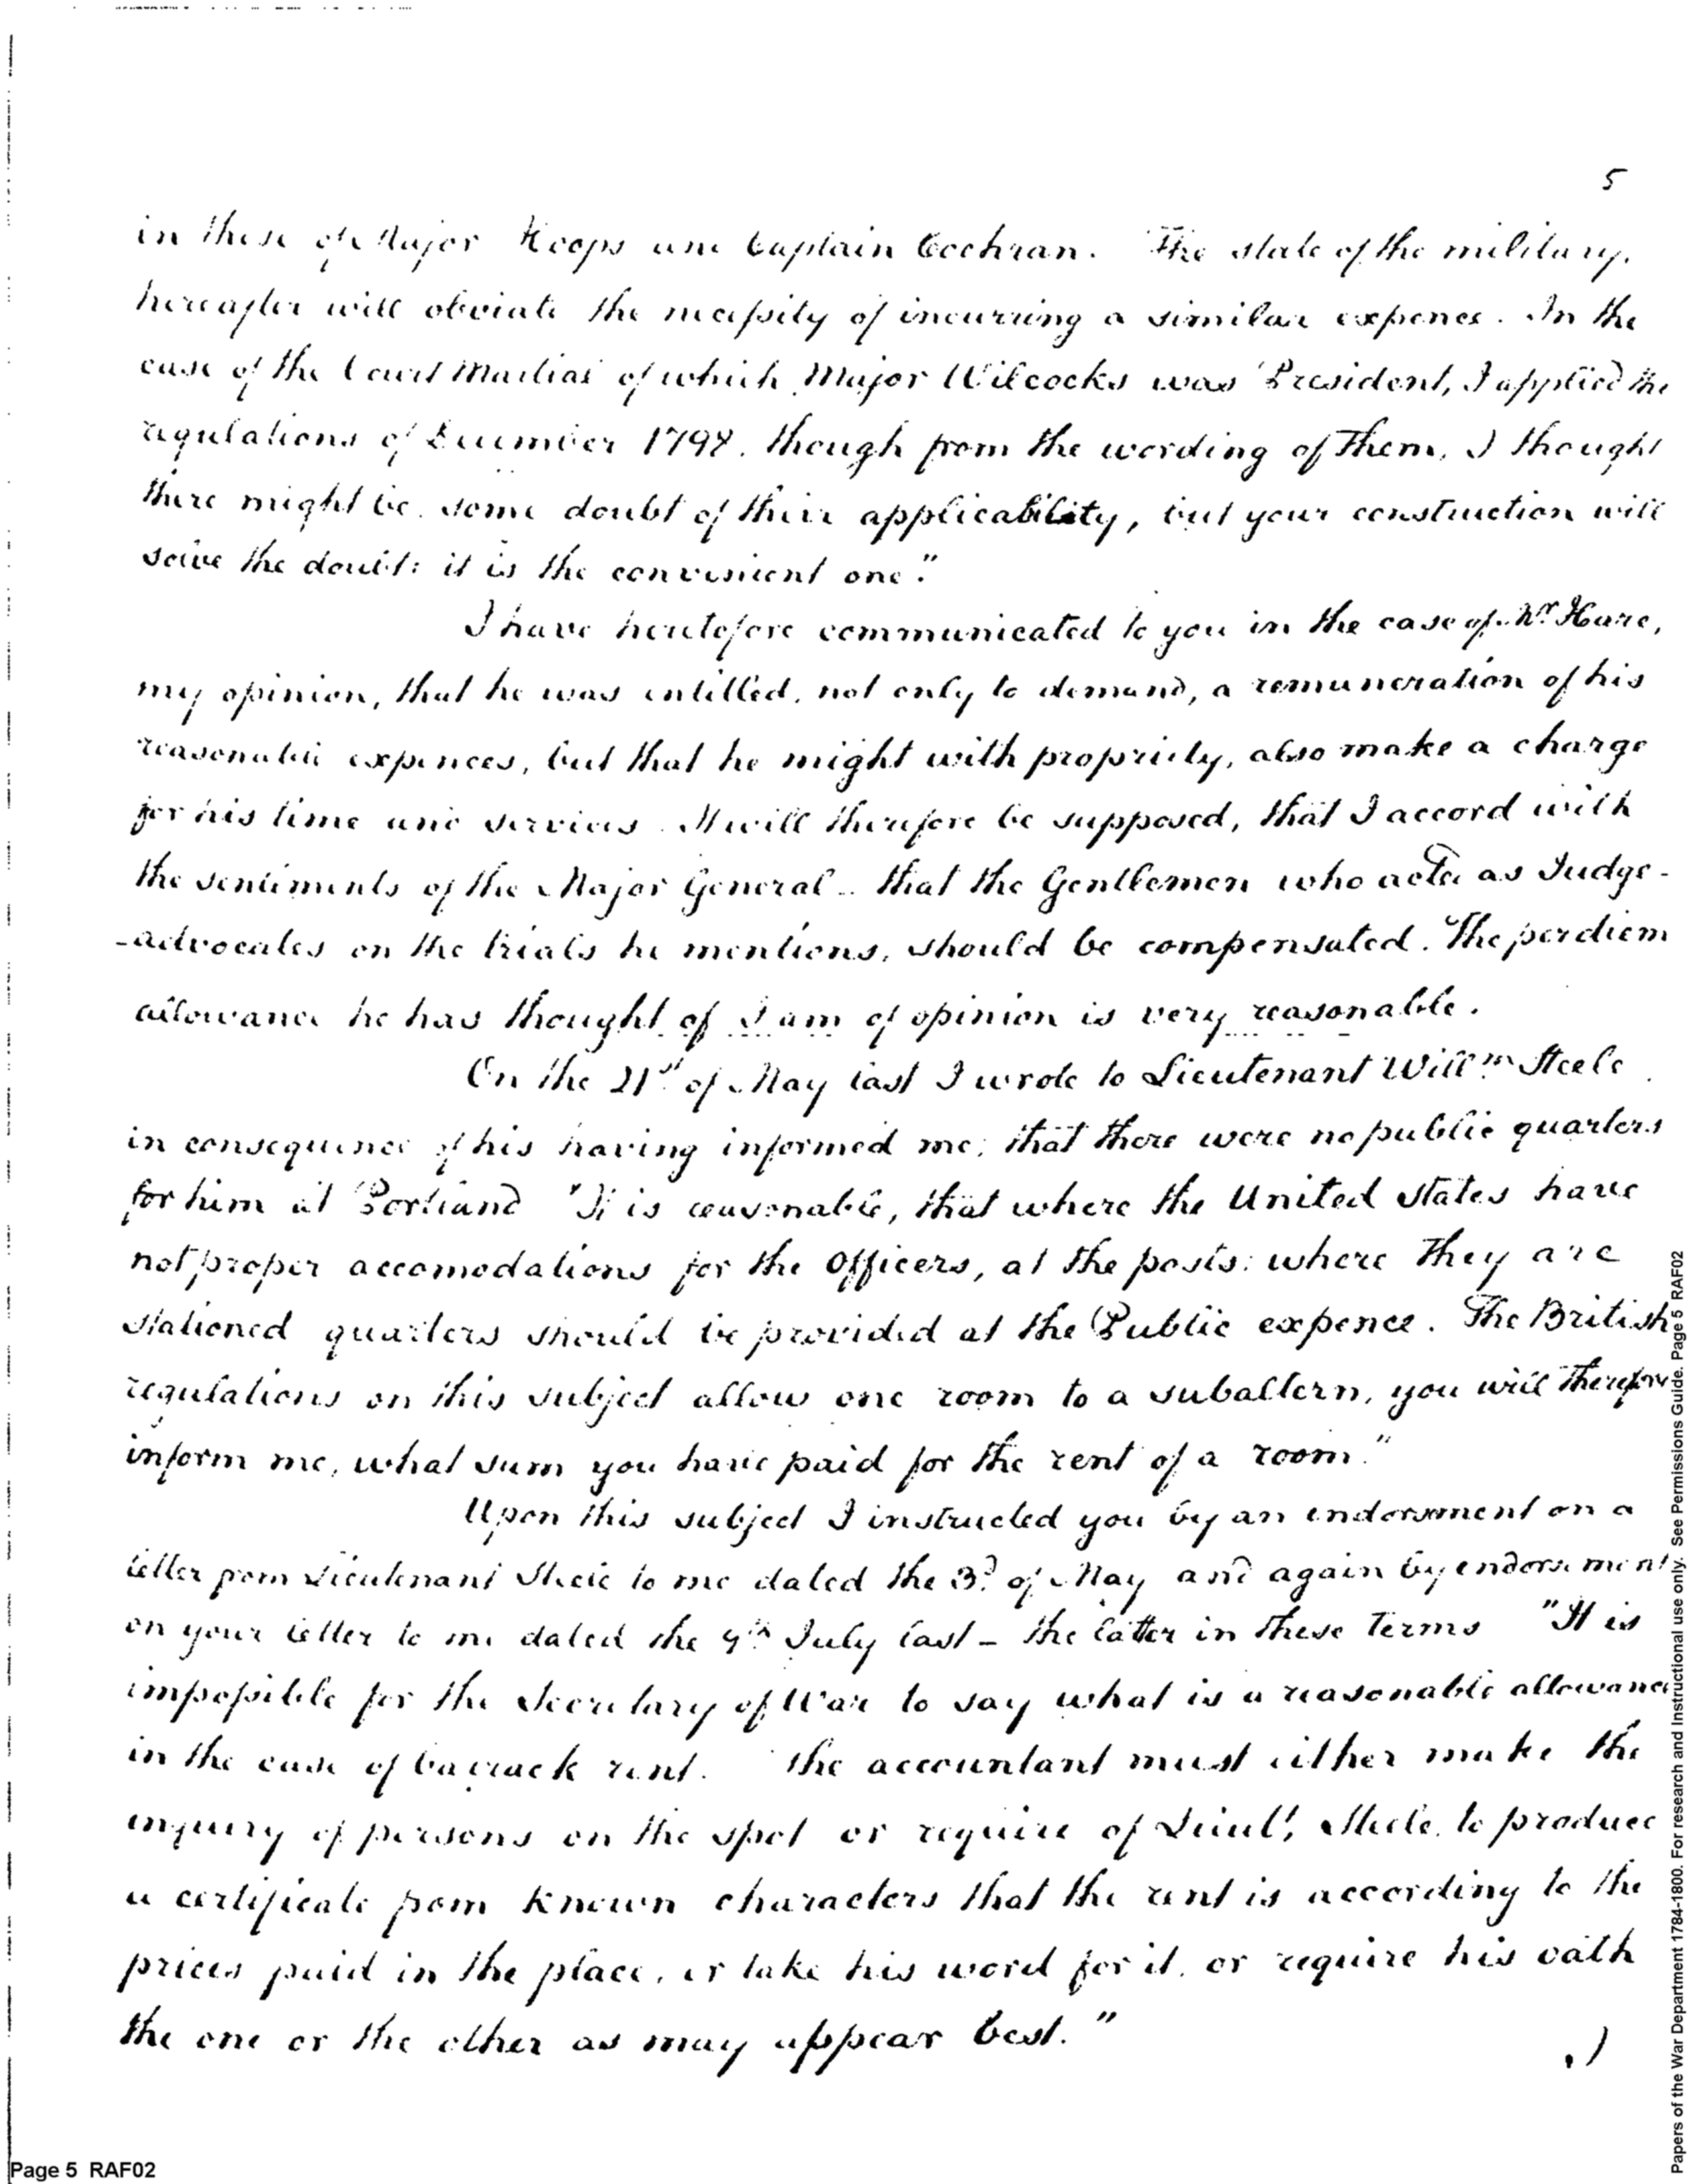 5
in those of Major Hoops and Captain Cochran. The state of the military,
hereafter will obviate the necessity of incurring a similar expence. In the
case of the Court Martial of which Major Wilcocks was President, I applied the
regulations of December 1798. though from the wording of them, I thought
there might be some doubt of their applicability, but your construction will
solve the doubt: it is the convenient one."
I have heretofore communicated to you in the case of Mr. Hare,
my opinion, that he was entitled, not only to demand, a remuneration of his
reasonable expences, but that he might with propriety, also make a charge
for his time and services. It will therefore be supposed, that I accord with
the sentiments of the Major General - that the Gentlemen who acted as Judge-
-advocates on the trials he mentions, should be compensated. The per diem
allowance he has thought of I am of opinion is very reasonable.
On the 21st of May last I wrote to Lieutenant Willm. Steele
in consequence of his having informed me, that there were no public quarters
for him at Portland "It is reasonable, that where the United States have
not proper accomodations for the Officers, at the posts: where they are
stationed quarters should be provided at the Public expence. The British
regulations on this subject allow one room to a subaltern, you will therefore
inform me, what sum you have paid for the rent of a room."
Upon this subject I instructed you by an endorsment on a
letter from Lieutenant Steele to me dated the 3d. of May and again by endorsement
on your letter to me dated the 9th July last - the latter in these terms "It is
impossible for the Secretary of War to say what is a reasonable allowance
in the case of barrack rent. the accountant must either make the
inquiry of persons on the spot or require of Lieut. Steele, to produce
a certificate from known characters that the rent is according to the
prices paid in the place, or take his word for it, or require his oath
the one or the other as may appear best."
Page 5 RAF02
Papers of the War Department 1784-1800. For research and Instructional use only. See Permissions Guide. Page 5 RAF02